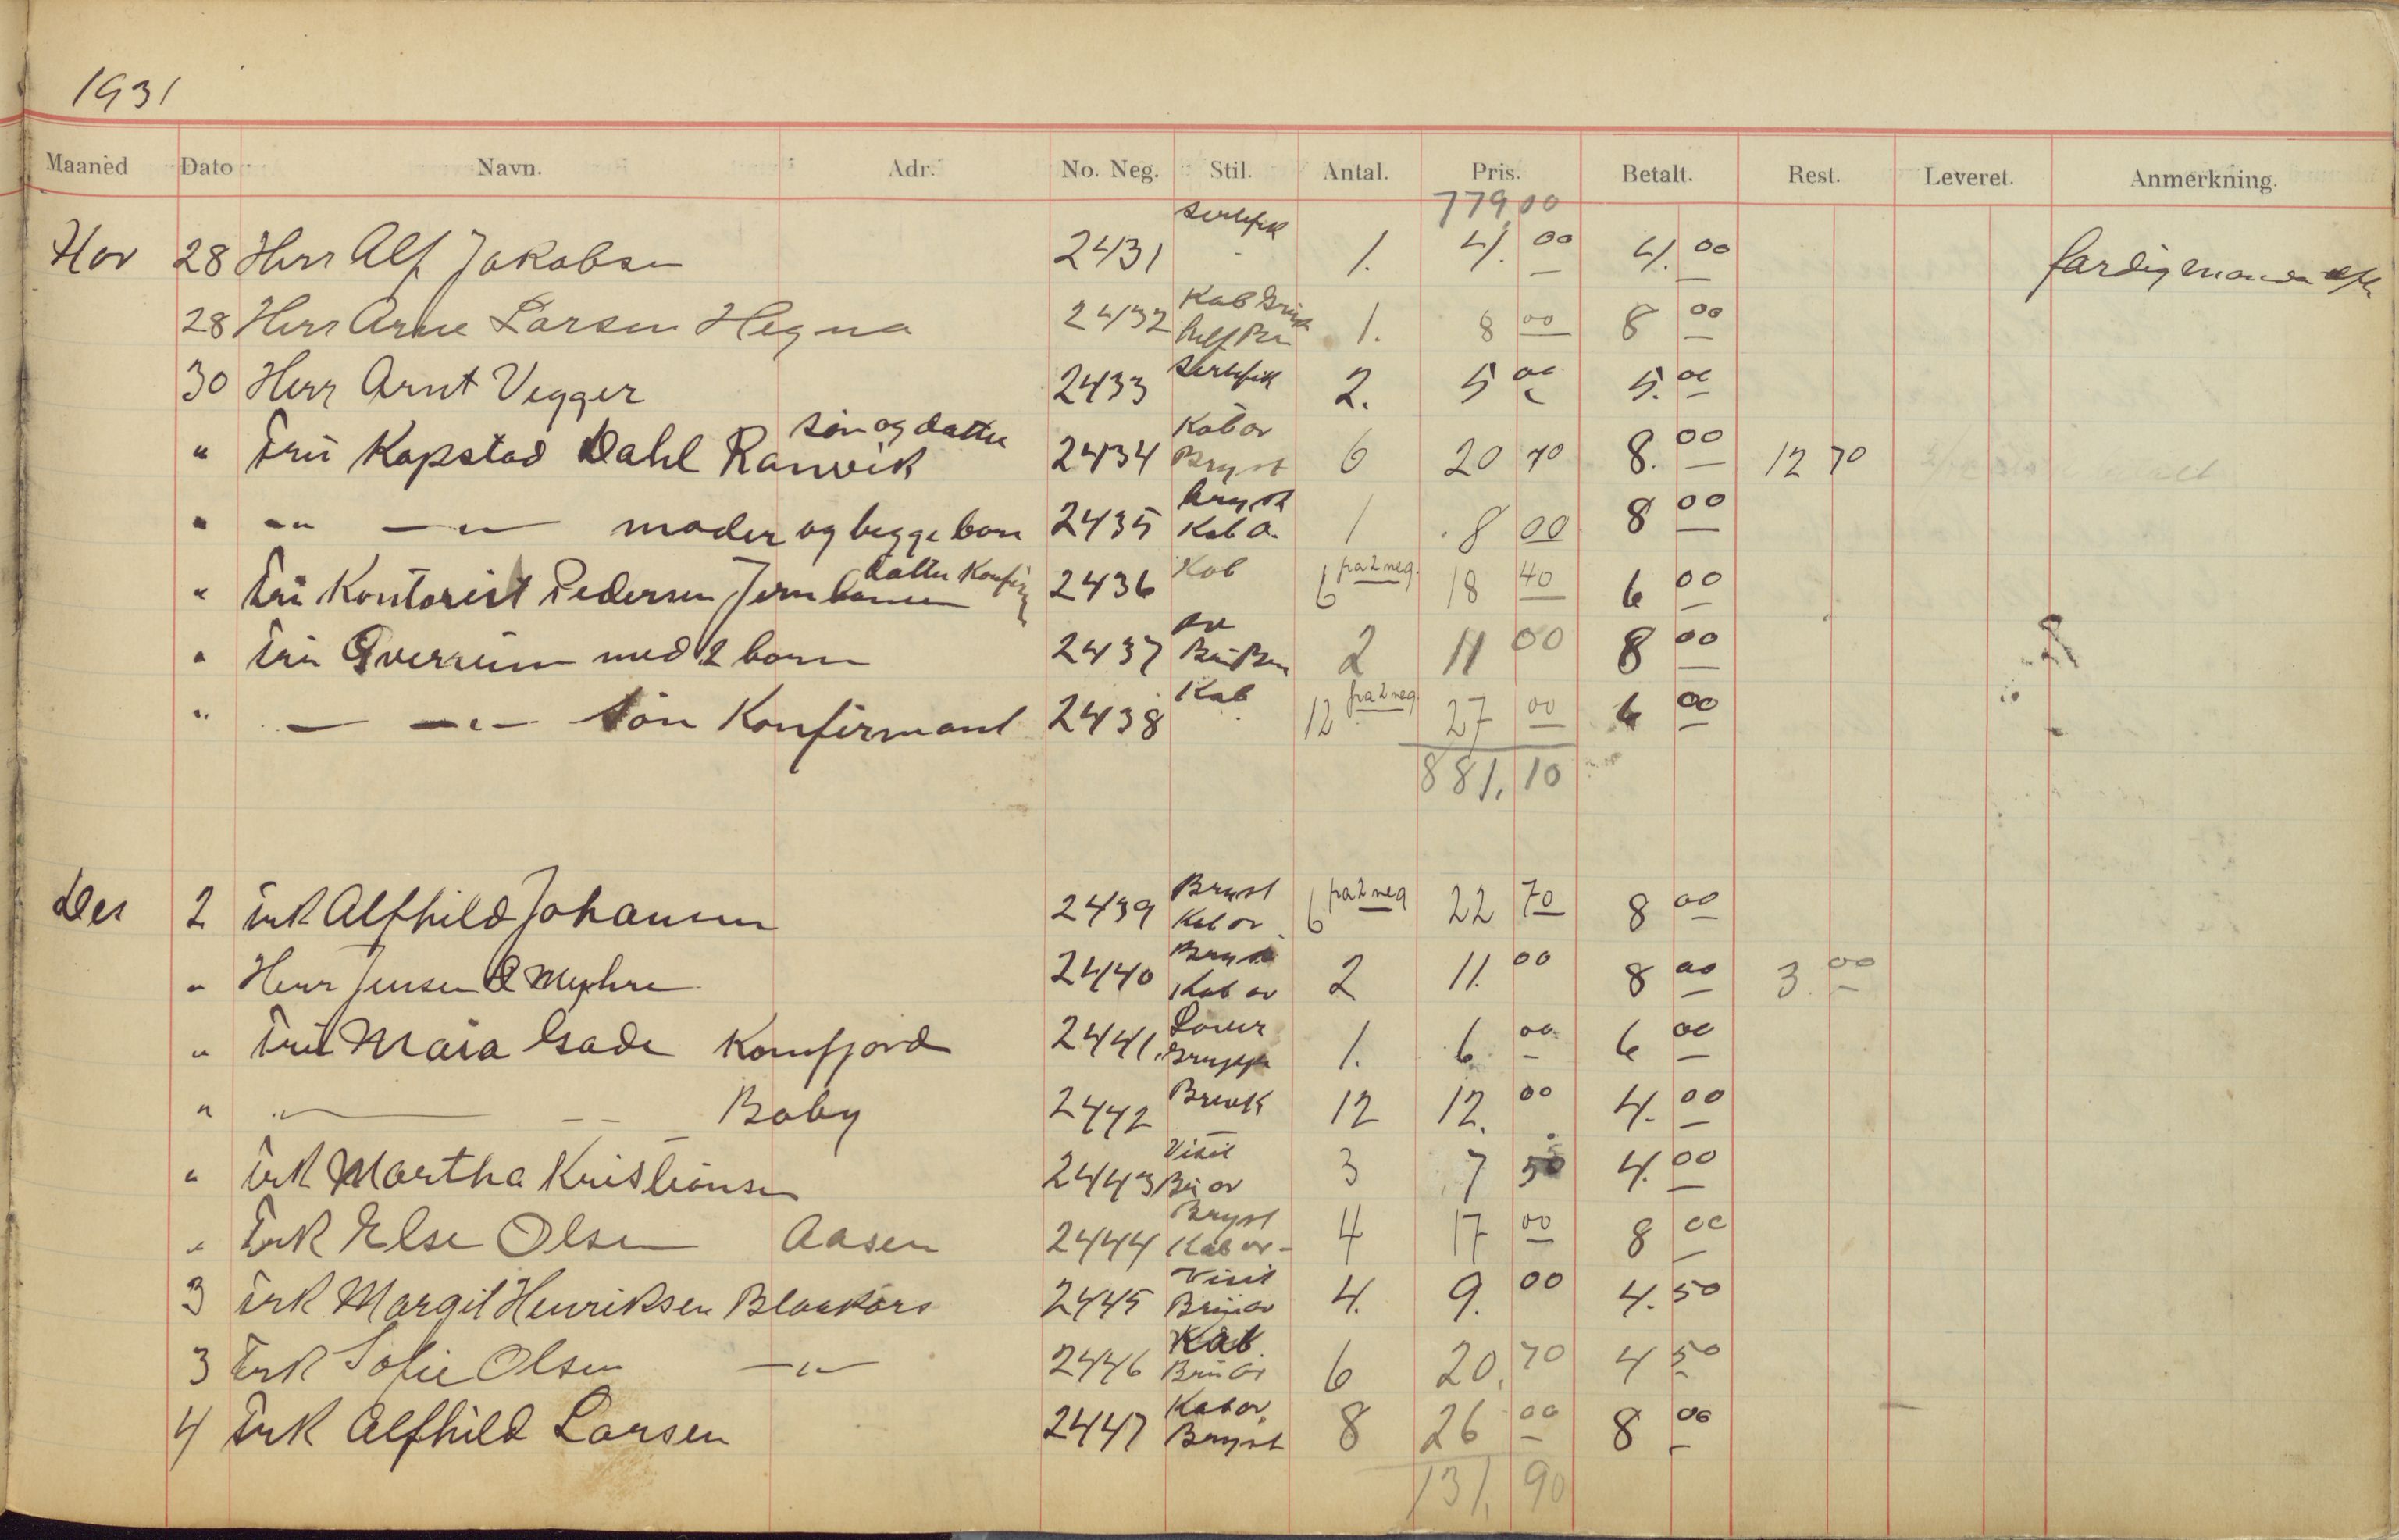 1931
Maaned Dato Navn. Adr. No. Neg. Stil. Antal. Pris. Betalt. Rest. Leveret. Anmerkning.
779,00
Nov 28 Herr Alf Jakobsen 2431 Sertifik 1. 4.00 4.00
28 Herr Arne Larsen Hegna 2432 Kab 1. 8 00 8 00
30 Herr Arnt Vegger 2433 Sertifik 2. 5 00 5.00
" Frü Kapstad Dahl Ranvik søn og datter 2434 Kab or Bryst 6 20 70 8.00 12 70
" " " — " — moder og begge born 2435 bryst Kab o. 1 8 00 8 00
" Frü Kontorist Pedersen Jernbanen datter Konfir 2436 Kab 6 pa 2 neg. 18 40 6 00
" Frü Qverrüm med 2 born 2437 2 11 00 8 00
" — — " — Søn Konfirmant 2438 Kab 12 pa 2 neg 27 00 6 00
881,10
Des 2 Frk Alfhild Johansen 2439 Bryst Kab or 6 pa 2 neg 22 70 8 00
" Herr Jensen Myhre 2440 Bryst Kab or 2 11.00 8 00 3.00
" Frü Maia Gade Komfjord 2441. Gruppe 1. 6 00 6 00
" " — Baby 2442 Brevk 12 12.00 4.00
" Frk Martha Kristiansen 2443 Visit Br or 3 7 50 4.00
" Frk Else Olsen Aasen 2444 Bryst Kab or 4 17 00 8 00
3 Frk Margit Henriksen Blaakors 2445 Visit Brü or 4. 9.00 4.50
3 Frk Sofie Olsen — " — 2446 Kab. Brü or 6 20,70 4 50
4 Frk Alfhild Larsen 2447 Kab or. Bryst 8 26 00 8 00
131,90